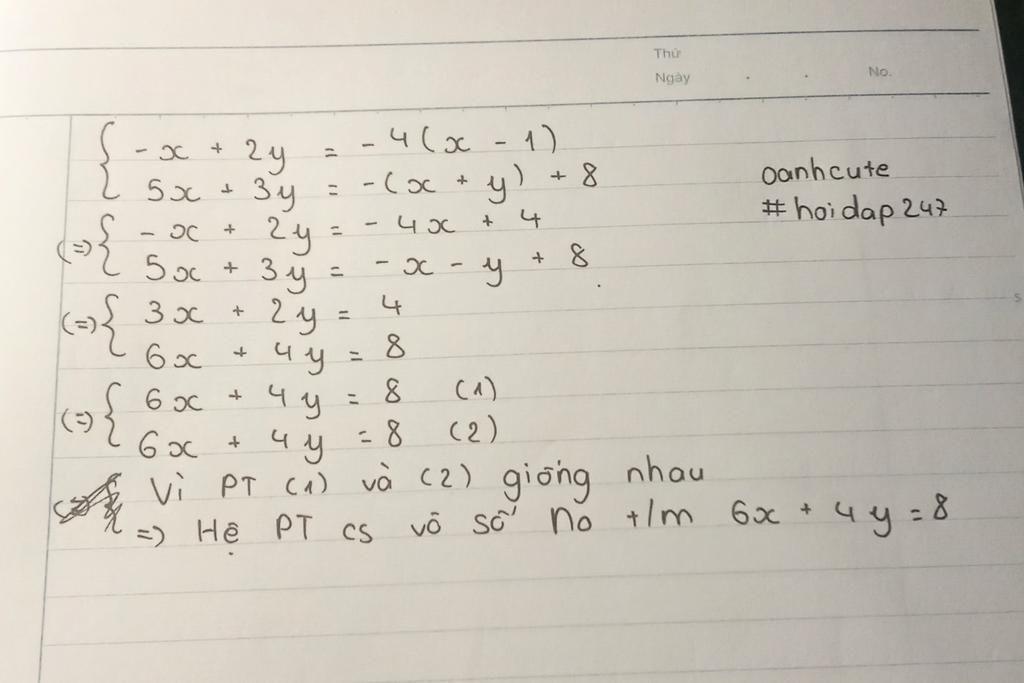 Thứ
Ngày . . No.
{ -x + 2y = -4(x - 1)
5x + 3y = -(x + y) + 8
oanhcute
#hoidap247
(=) { -x + 2y = -4x + 4
5x + 3y = -x - y + 8
(=) { 3x + 2y = 4
6x + 4y = 8
(=) { 6x + 4y = 8 (1)
6x + 4y = 8 (2)
Vì PT (1) và (2) giống nhau
=) Hệ PT cs vô số no t/m 6x + 4y = 8